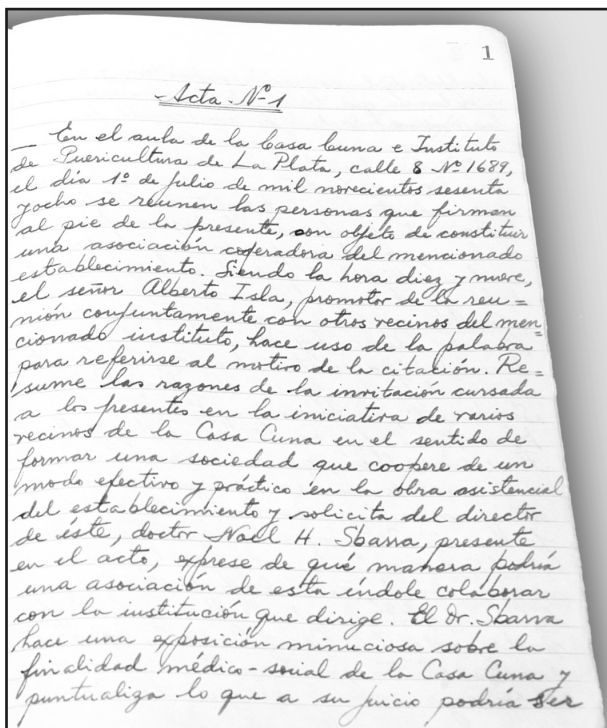 1
Acta Nº 1
En el aula de la Casa Cuna e Instituto
de Puericultura de La Plata, calle 8 Nº 1689,
el día 1º de julio de mil novecientos sesenta
y ocho se reunen las personas que firman
al pie de la presente, con objeto de constituir
una asociación coperadora del mencionado
establecimiento. Siendo la hora diez y nueve,
el señor Alberto Isla, promotor de la reu=
nión conjuntamente con otros vecinos del men=
cionado instituto, hace uso de la palabra
para referirse al motivo de la citación. Re=
sume las razones de la invitación cursada
a los presentes en la iniciativa de varios
vecinos de la Casa Cuna en el sentido de
formar una sociedad que coopere de un
modo efectivo y práctico en la obra asistencial
del establecimiento y solicita del director
de éste, doctor Noel H. Sbarra, presente
en el acto, exprese de qué manera podría
una asociación de esta índole colaborar
con la institución que dirige. El Dr. Sbarra
hace una exposición minuciosa sobre la
finalidad médico-social de la Casa Cuna y
puntualiza lo que a su juicio podría ser